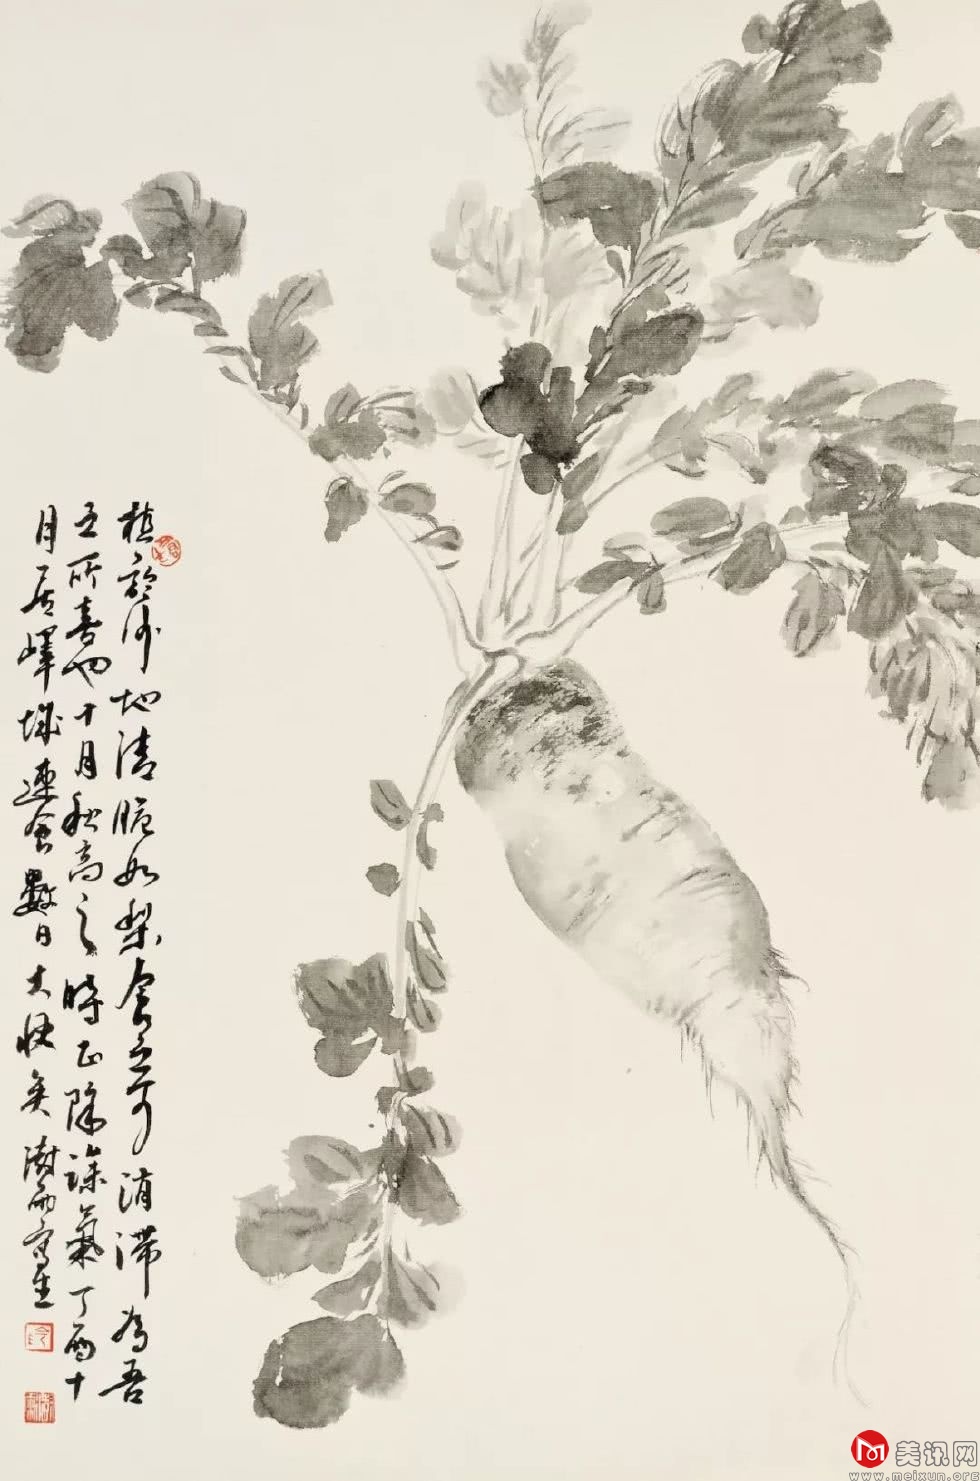 植于沙地清脆如梨食之可消滞为吾
王所喜也十月秋高之時正除燥氣丁酉十
月居峄城連食數日大快矣澍雨寫生
美讯网
www.meixun.org